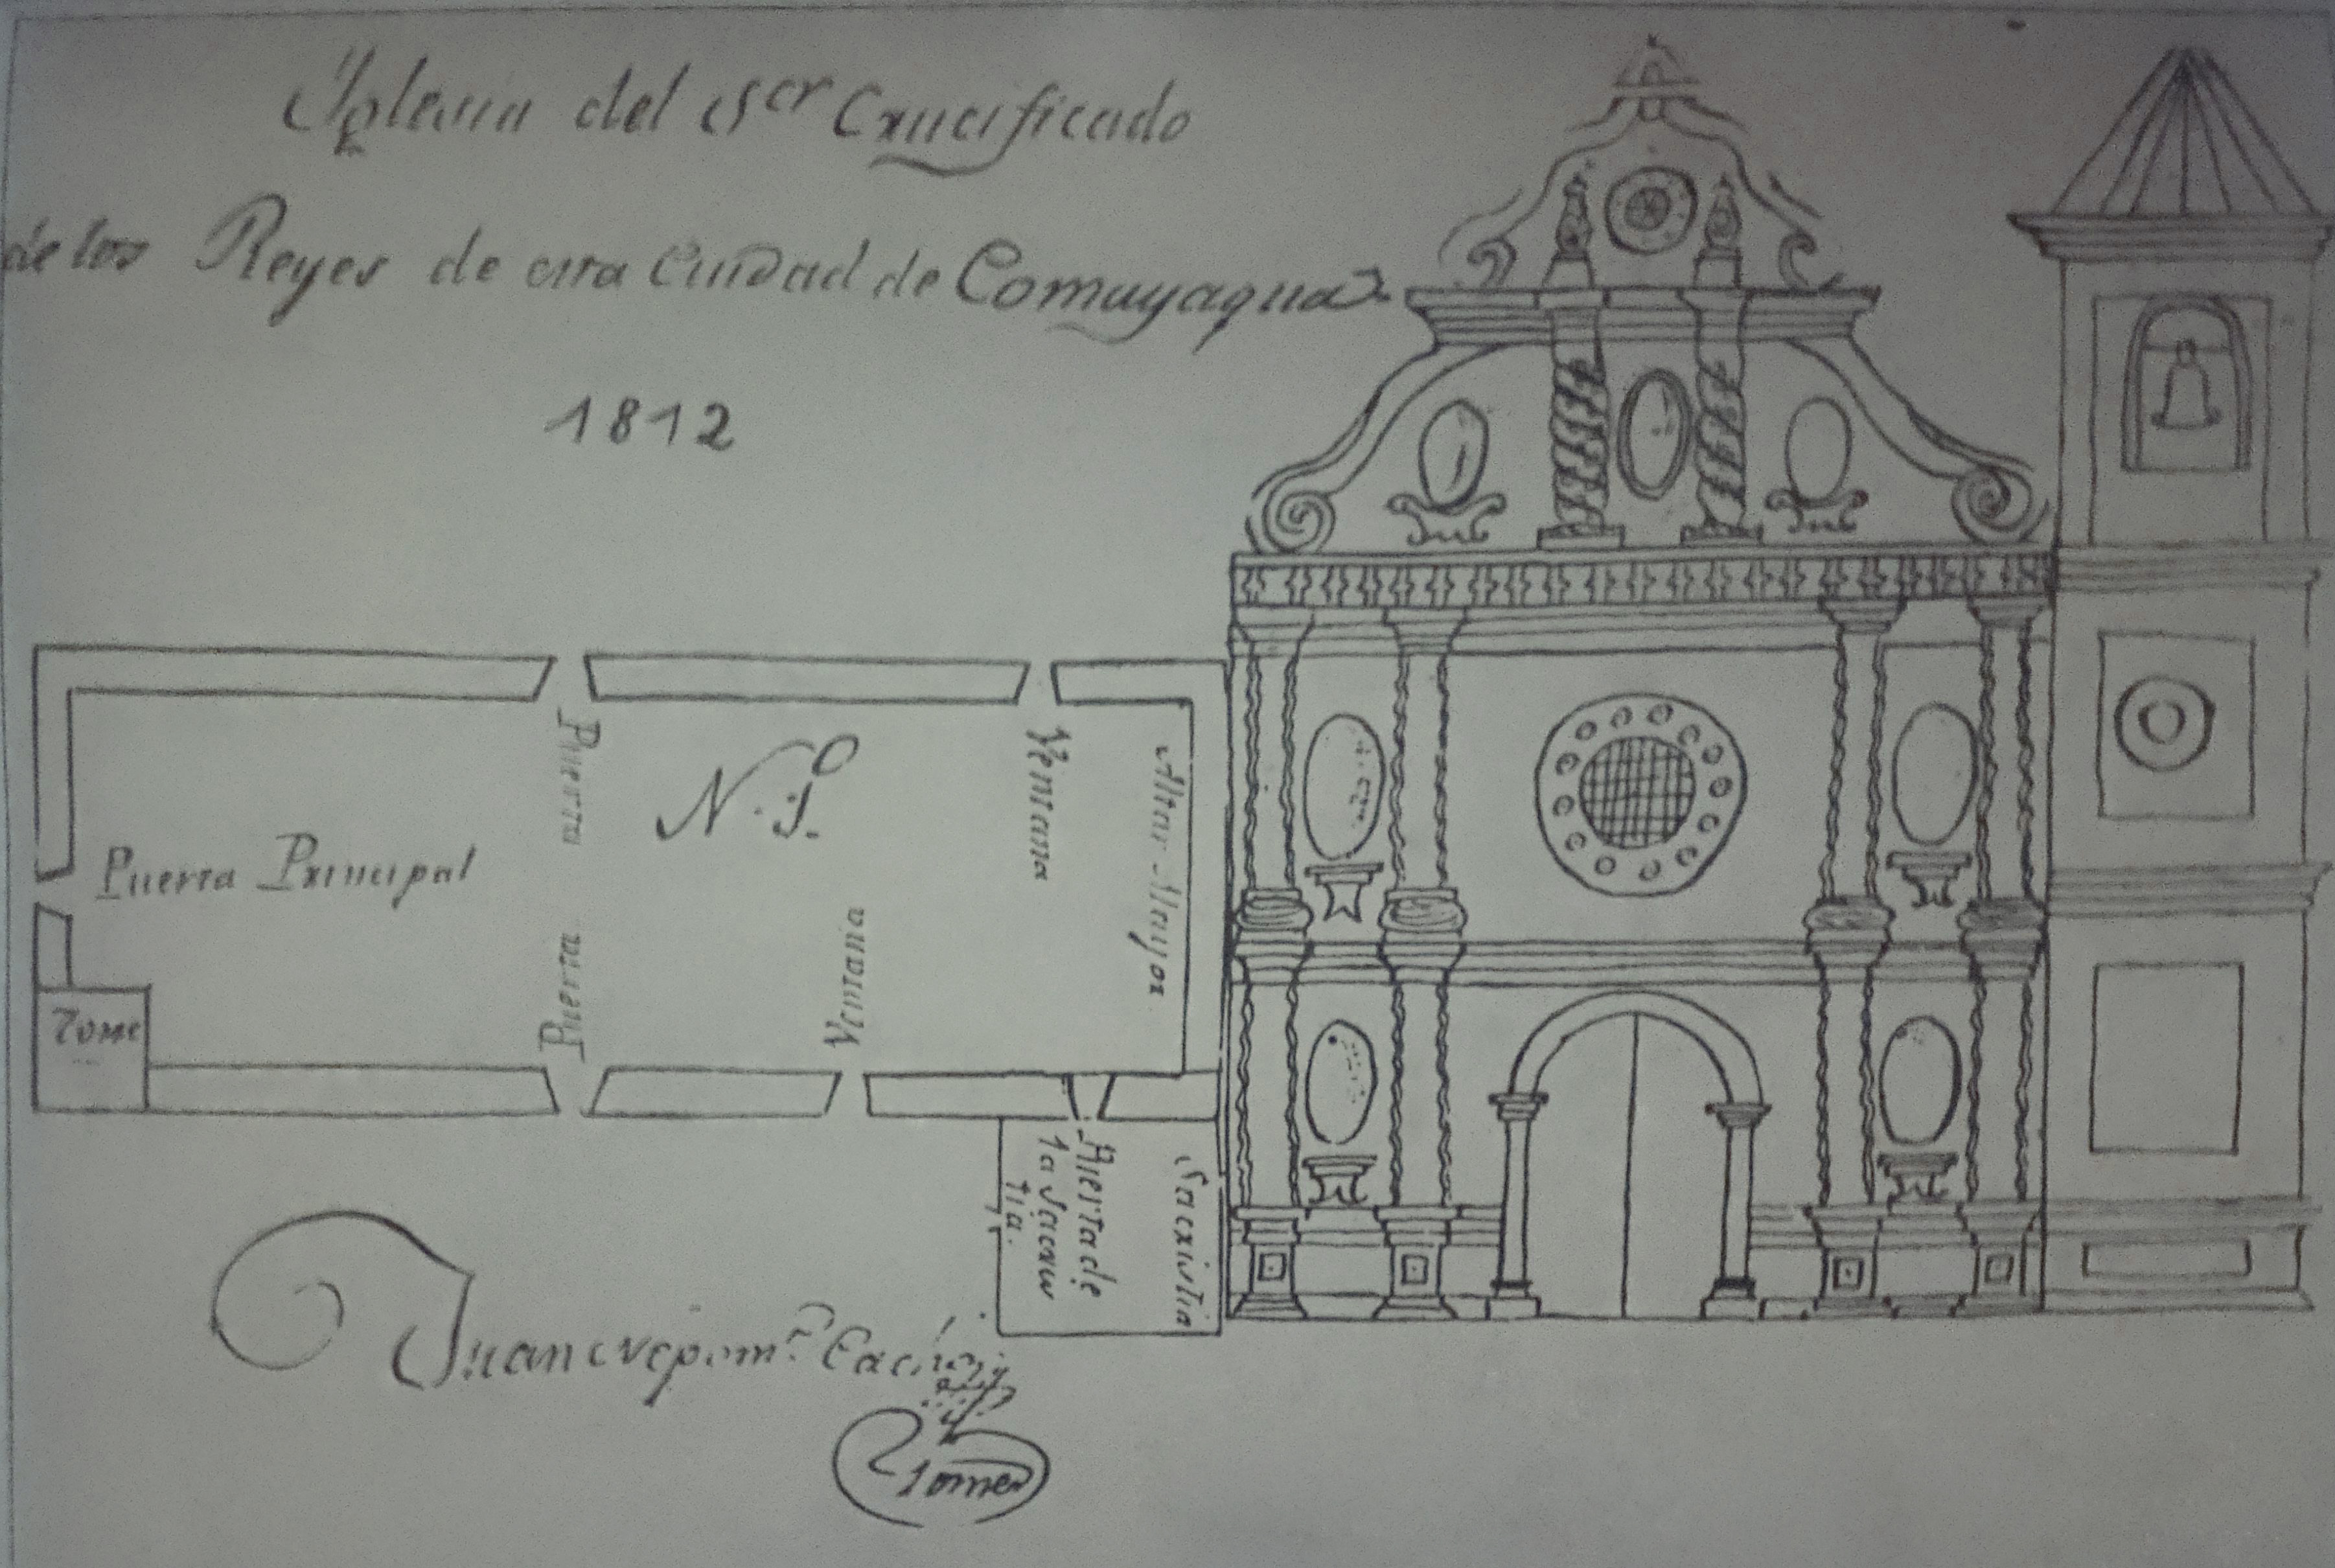 Yglesia del Sor Crucificado
de los Reyes de esta Ciudad de Comayagua
1812
Puerta
N. 1.º
Ventana
Altar Mayor
Puerta Principal
Puerta
Ventana
Torre
Puerta de
la Sacris
tia.
Sacristia
Juan Nepom.º